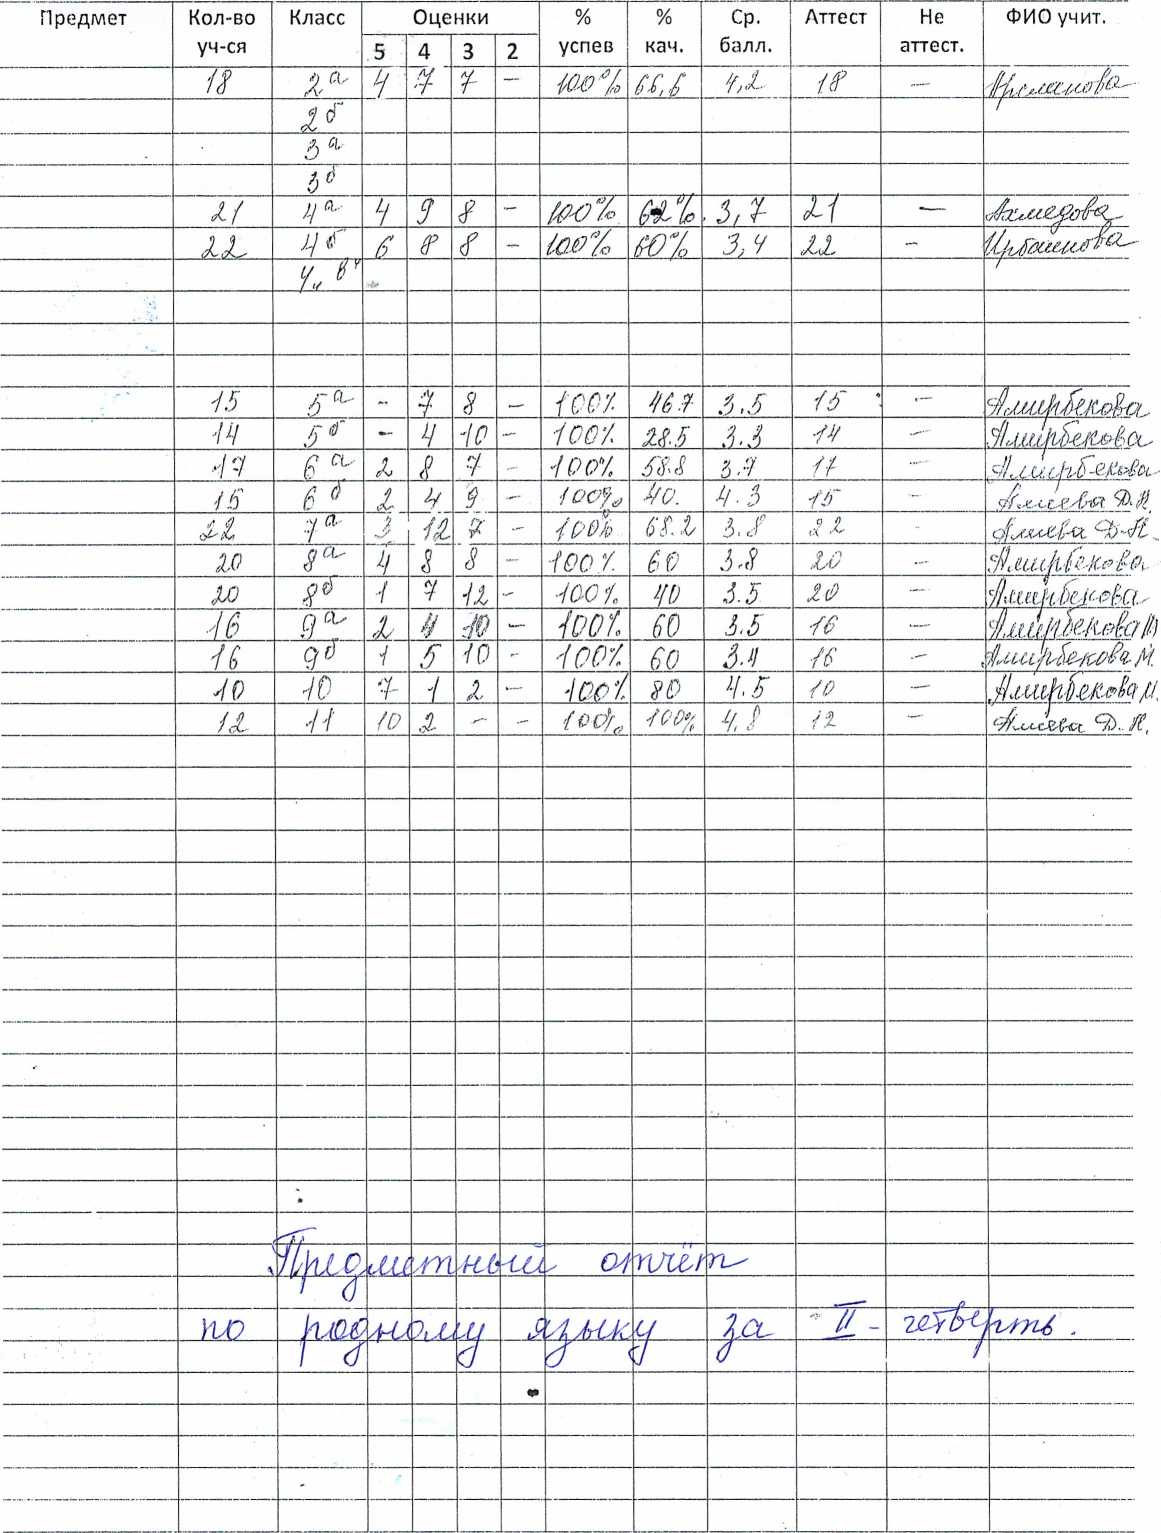 Предмет Кол-во уч-ся Класс Оценки % успев % кач. Ср. балл. Аттест Не аттест. ФИО учит.
5 4 3 2
18 2а 4 7 7 – 100% 66,6 4,2 18 — Арсланова
2б
3а
3б
21 4а 4 9 8 – 100% 62%. 3,7 21 — Ахмедова
22 4б 6 8 8 – 100% 60% 3,4 22 –
4 „в"
15 5а - 7 8 – 100% 46.7 3.5 15 — Амирбекова
14 5б - 4 10 – 100% 28.5 3.3 14 — Амирбекова
17 6а 2 8 7 – 100% 58.8 3.7 17 — Амирбекова
15 6б 2 4 9 – 100% 40. 4.3 15 – Алиева Д.Н.
22 7а 3 12 7 - 100% 68.2 3.8 22 - Алиева Д.Н.
20 8а 4 8 8 - 100% 60 3.8 20 — Амирбекова
20 8б 1 7 12 - 100% 40 3.5 20 — Амирбекова
16 9а 2 4 10 – 100% 60 3.5 16 — Амирбекова М
16 9б 1 5 10 - 100% 60 3.4 16 — Амирбекова М.
10 10 7 1 2 – 100% 80 4.5 10 — Амирбекова М.
12 11 10 2 - - 100% 100% 4.8 12 — Алиева Д.Н.
Предметный отчёт
по родному языку за II - четверть.